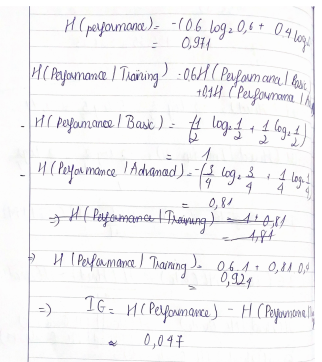 H(performance) = -(0.6 log₂ 0,6 + 0.4 log₂
= 0,971
H(Performance | Training) = 0.6H (Performance | Basic
+0.4H (Performance | A
- H (Performance | Basic) = -(1/2 log₂ 1/2 + 1/2 log₂ 1/2)
= 1
- H (Performance | Advanced) = -(3/4 log₂ 3/4 + 1/4 log₂ 1/4
= 0,81
=> H (Performance | Training) = 1 + 0,81
= 1,81
=> H (Performance | Training) = 0.6 1 + 0,81 0,4
= 0,924
=> IG = H(Performance) - H (Performance |
≈ 0,047